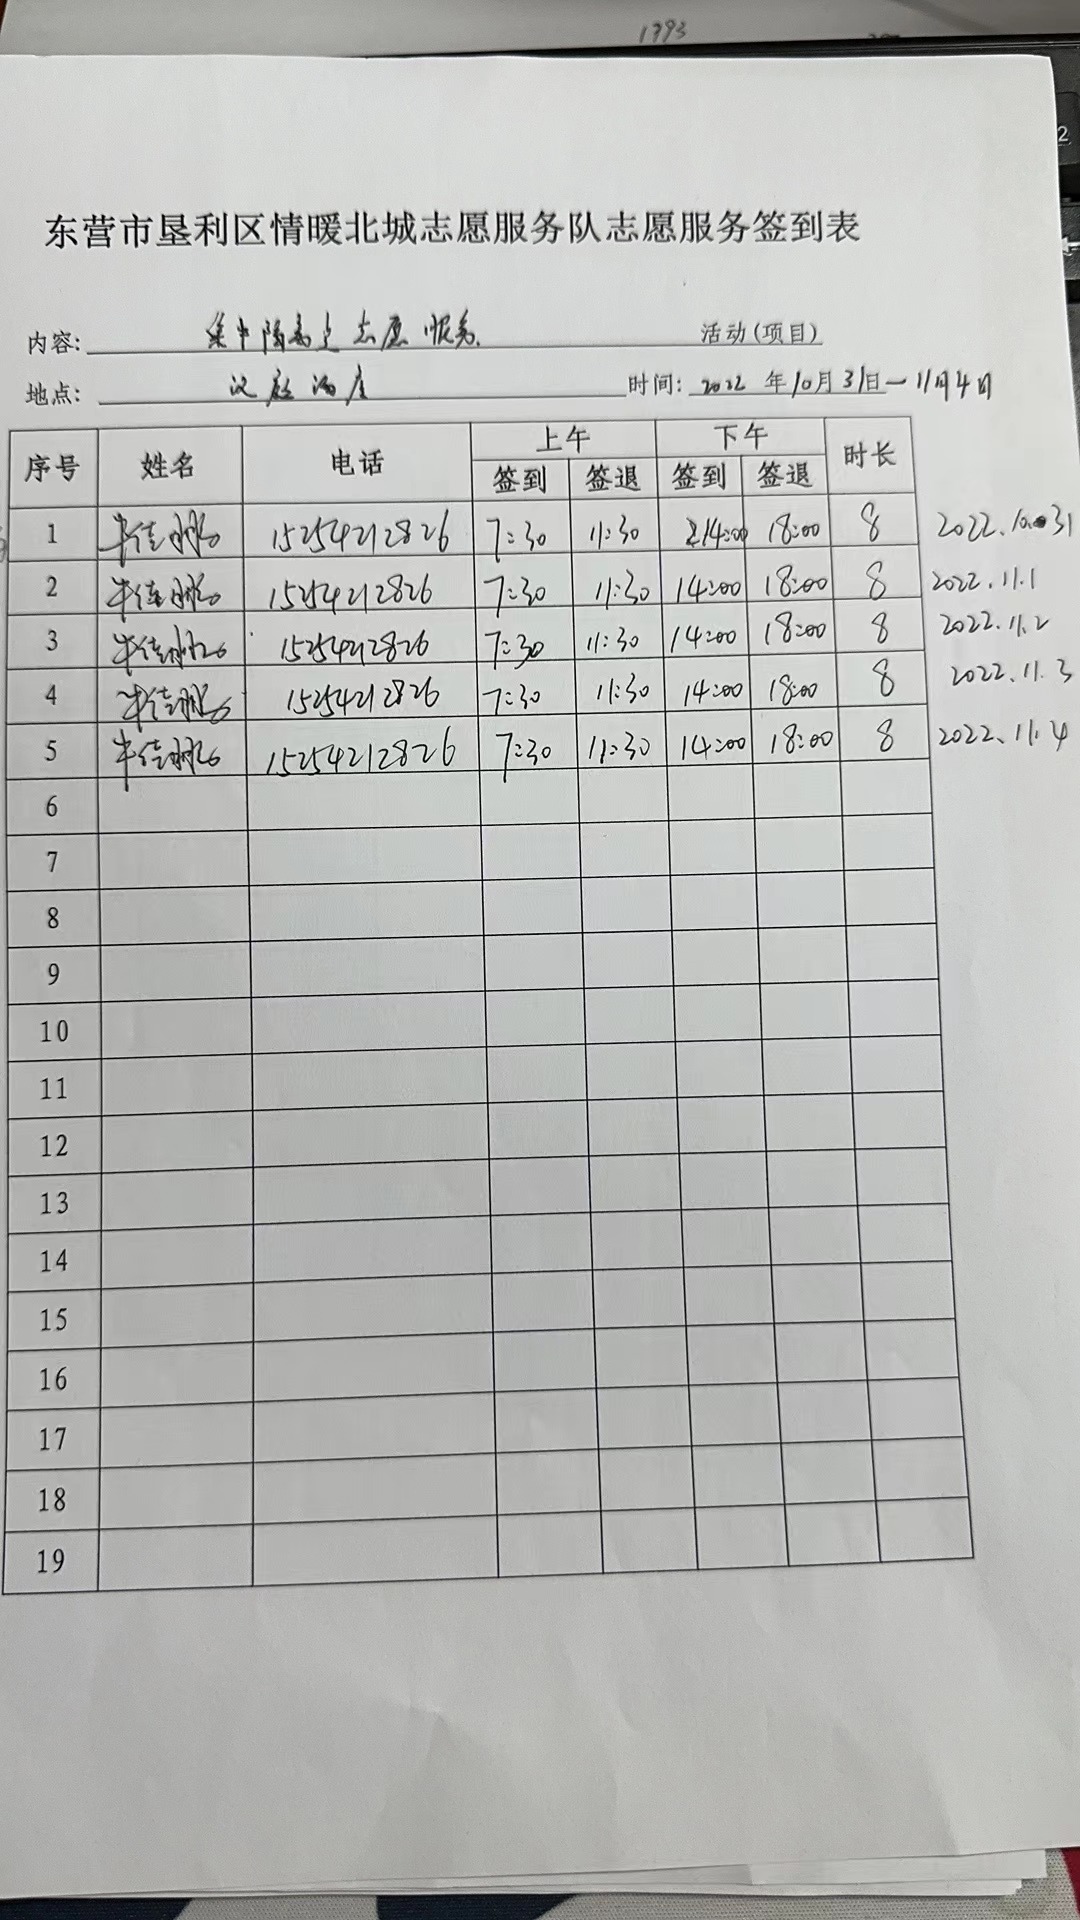 1793
东营市垦利区情暖北城志愿服务队志愿服务签到表
内容: 集中隔离点志愿服务 活动(项目)
地点: 汉庭酒店 时间: 2022 年10月31日—11月4日
序号 姓名 电话 上午 下午 时长
签到 签退 签到 签退
1 牛佳 15254212826 7:30 11:30 14:00 18:00 8 2022.10.31
2 牛佳 15254212826 7:30 11:30 14:00 18:00 8 2022.11.1
3 牛佳 15254212826 7:30 11:30 14:00 18:00 8 2022.11.2
4 牛佳 15254212826 7:30 11:30 14:00 18:00 8 2022.11.3
5 牛佳 15254212826 7:30 11:30 14:00 18:00 8 2022.11.4
6
7
8
9
10
11
12
13
14
15
16
17
18
19